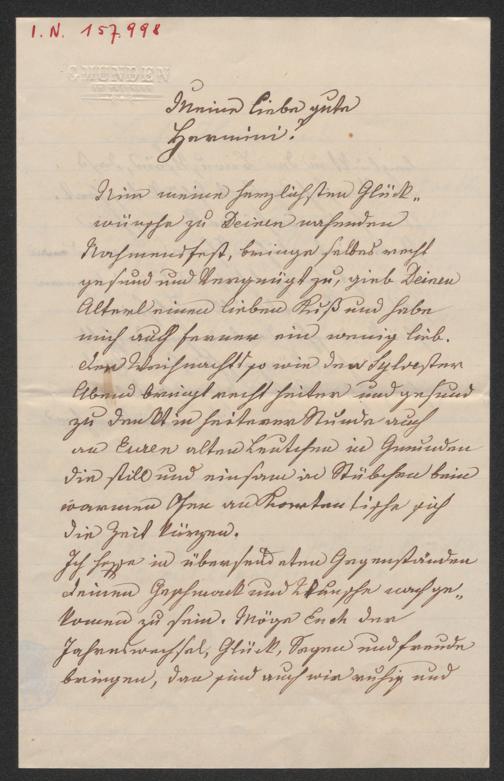 I. N. 157.998
GMUNDEN
Meine liebe gute
Hermini!
Nim meine herzlichsten Glück-
wünsche zu Deinen nahenden
Nahmensfest, bringe selbes recht
gesund und Vergnügt zu, gieb Deinen
Alterl einen lieben Kuß und habe
mich auch ferner ein wenig lieb.
den Weihnachts so wie den Sylvester
Abend bringt recht heiter und gesund
zu denkt in heiterer Stunde auch
an Euren alten Leutchen in Gmunden
die still und einsam in Stübchen beim
warmen Ofen an Kartentische sich
die Zeit kürzen.
Ich hoffe in übersendeten Gegenständen
deinen Geschmack und Wunsche nachge-
komen zu sein. Möge Euch der
Jahreswechsel, Glück, Segen und freude
bringen, dan sind auch wir ruhig und